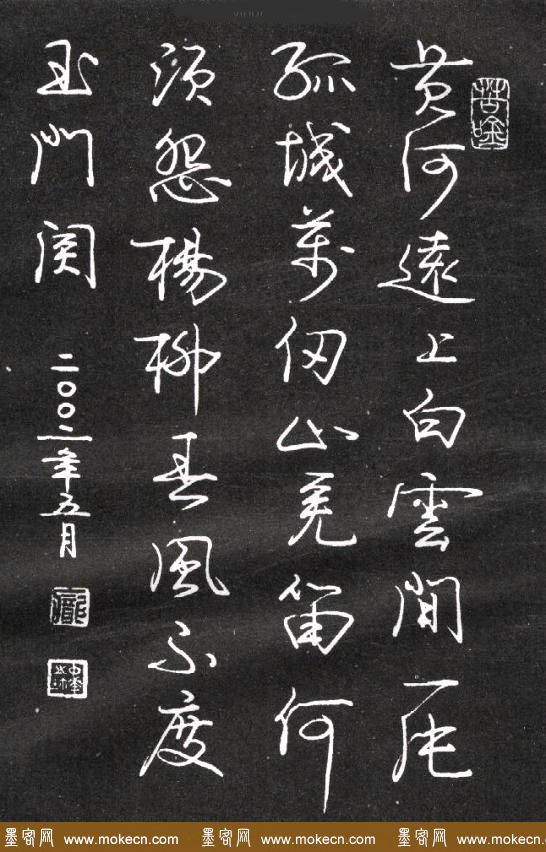 黄河遠上白雲間一座
孤城萬仞山羌笛何
須怨楊柳春風不度
玉門関
二〇〇二年五月
墨客网 www.mokecn.com 墨客网 www.mokecn.com 墨客网 www.mokecn.com